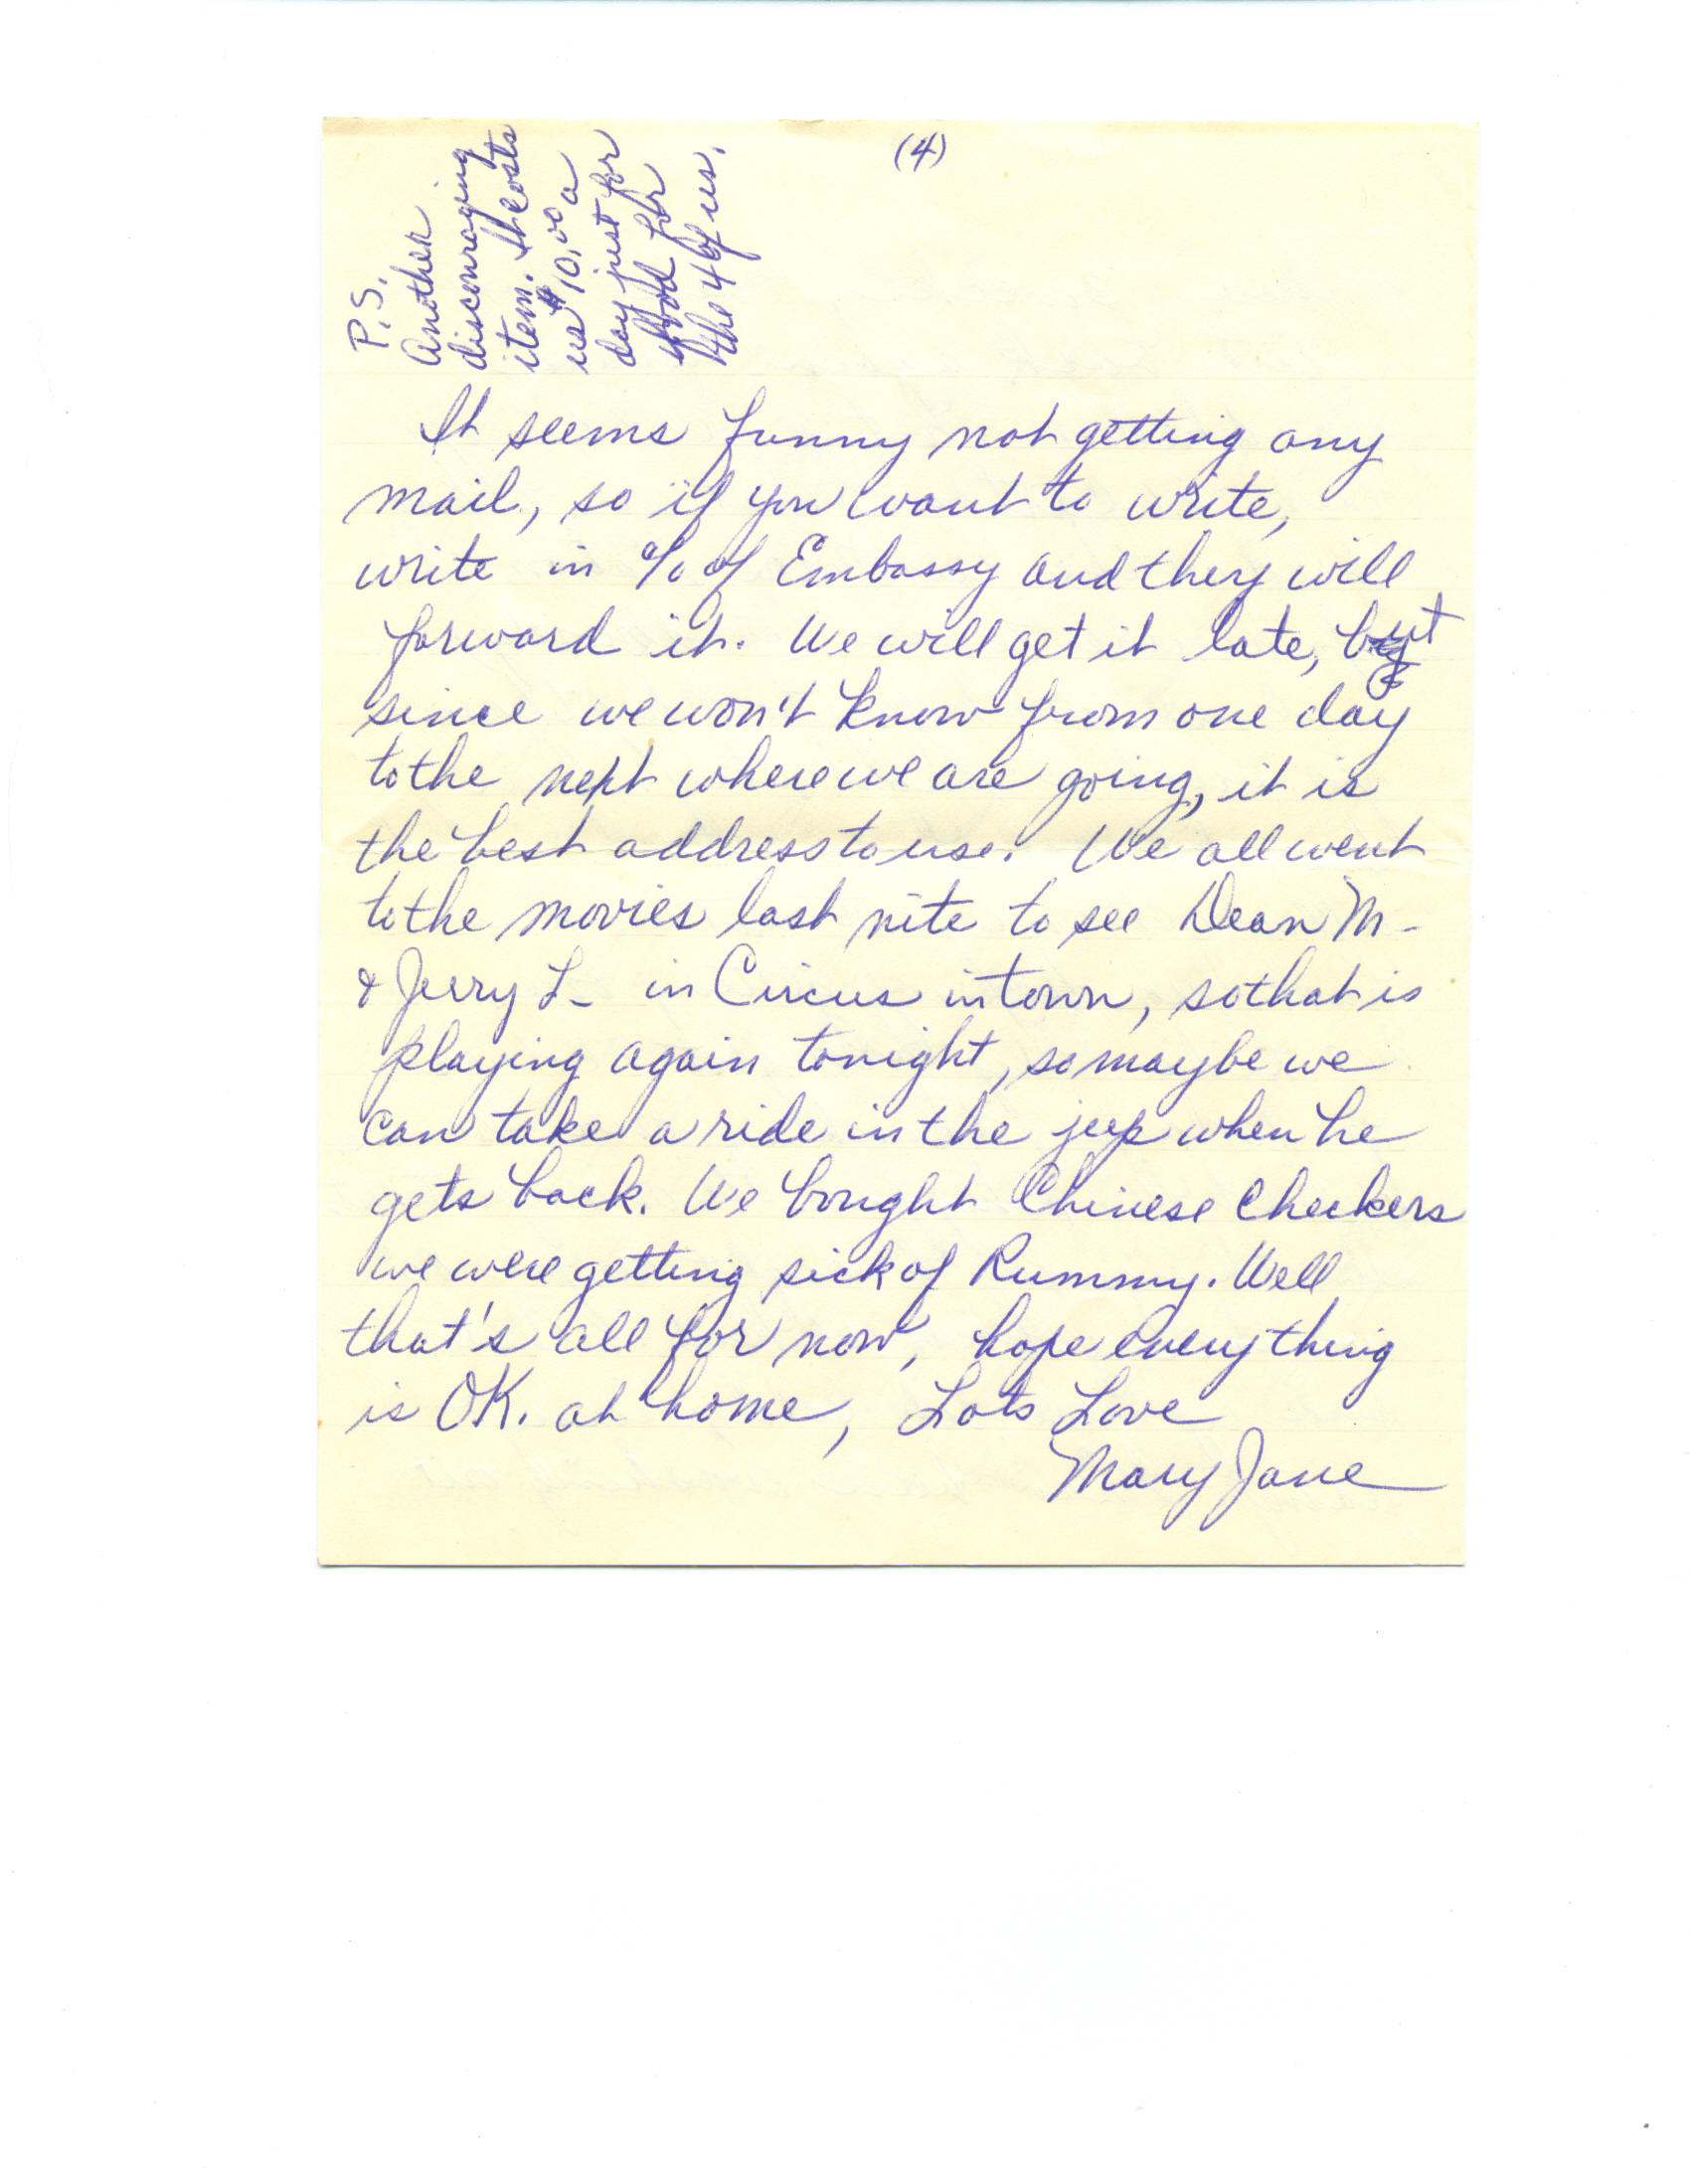 (4)
P.S.
Another
discouraging
item. It costs
us $10.00 a
day just for
food for
the 4 of us.
It seems funny not getting any
mail, so if you want to write,
write in % of Embassy and they will
forward it. We will get it late, but
since we won't know from one day
to the next where we are going, it is
the best address to use. We all went
to the movies last nite to see Dean M-
& Jerry L- in Circus in town, so that is
playing again tonight, so maybe we
can take a ride in the jeep when he
gets back. We bought Chinese Checkers
we were getting sick of Rummy. Well
that's all for now, hope everything
is OK. at home, Lots Love
Mary Jane